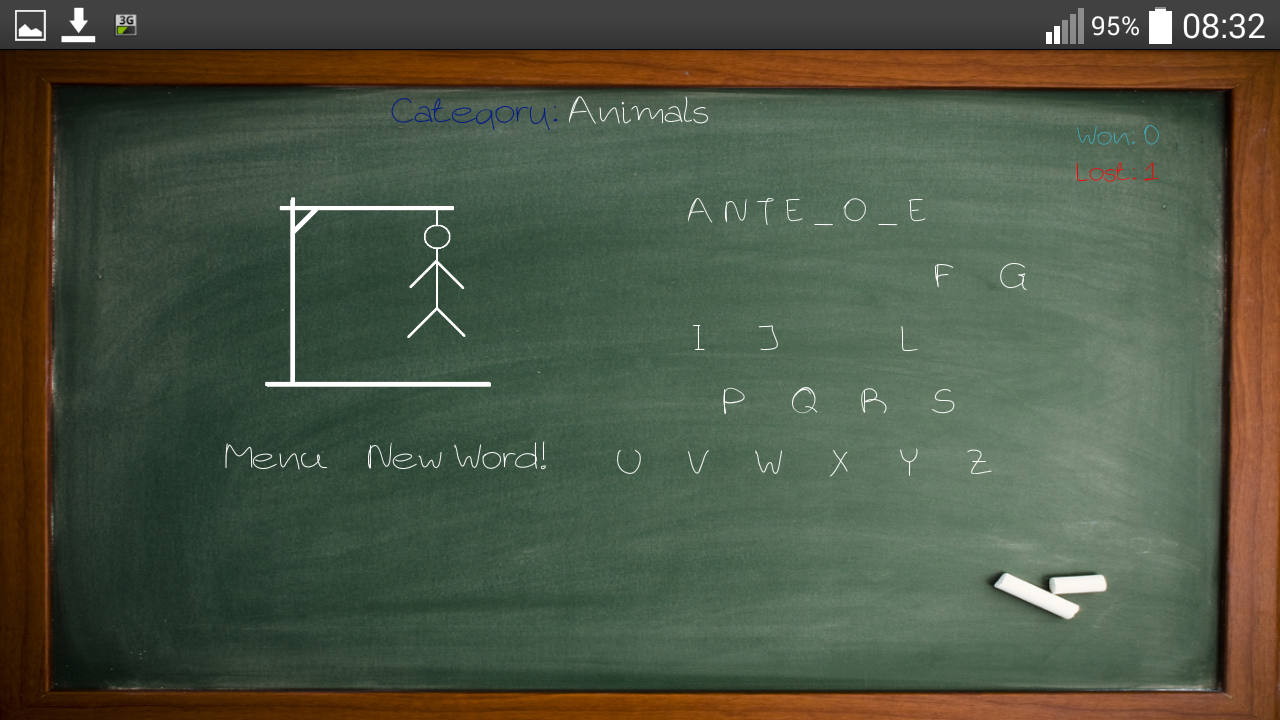 3G 95% 08:32
Category: Animals
Won: 0
Lost: 1
ANTE_O_E
F G
I J L
P Q R S
Menu New Word! U V W X Y Z